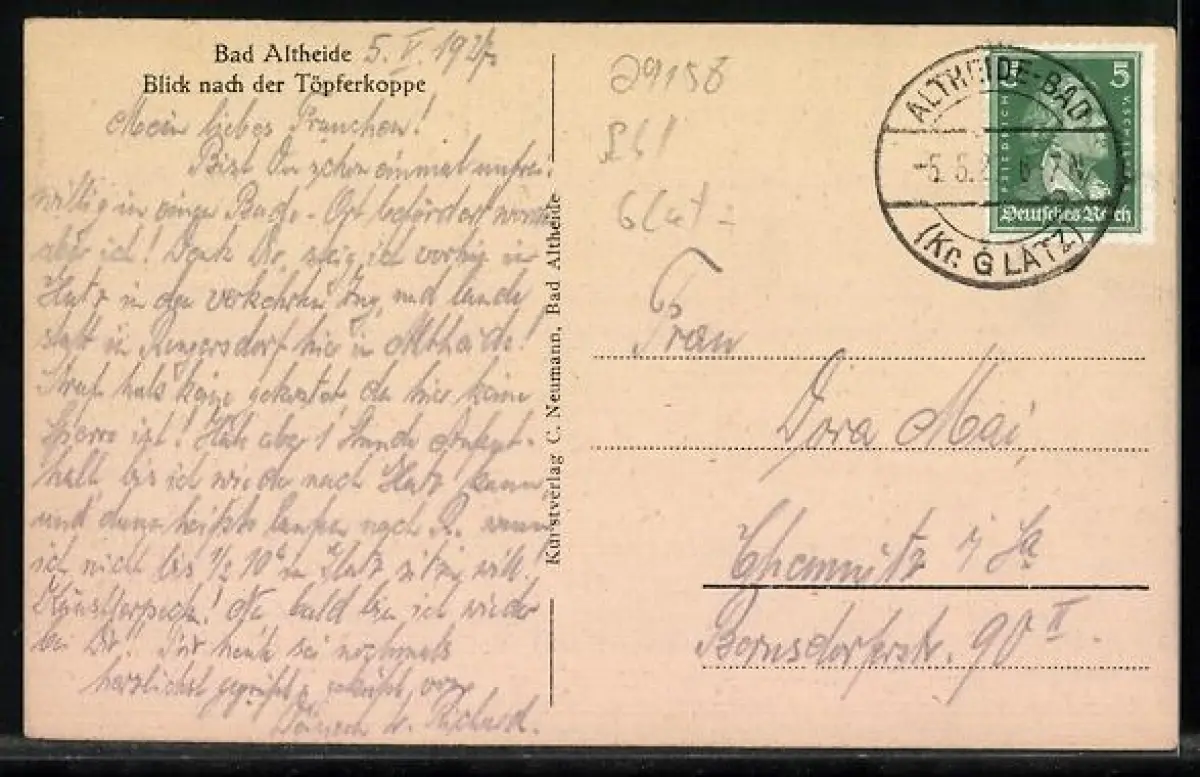 Bad Altheide 5. V. 1927
Blick nach der Töpferkoppe
Mein liebes Frauchen!
Bist Du schon einmal unfrei-
willig in einem Bade-Ort befördert worden
aber ich! Denk Dir, steig ich vorhin in
Glatz in den verkehrten Zug, und lande
statt in Rengersdorf hier in Altheide!
Strafe hats keine gekostet, da hier keine
Sperre ist! Hab aber 1 Stunde Aufent-
halt bis ich wieder nach Glatz kann
und dann heißts laufen nach R. wenn
ich nicht bis 1/2 10 in Glatz sitzen will.
Künstlerpech! Na bald bin ich wieder
bei Dir. Für heute sei nochmals
herzlichst gegrüßt u. geküßt, von
Richard.
Kunstverlag C. Neumann, Bad Altheide
29158
Glatz
5 5
FRIEDRICH
Deutsches Reich
ALTHEIDE-BAD
-5.5.2 6-7N
(Kr. GLATZ)
Frau
Dora Mai
Chemnitz i/Sa
Bornsdorferstr. 90 II.